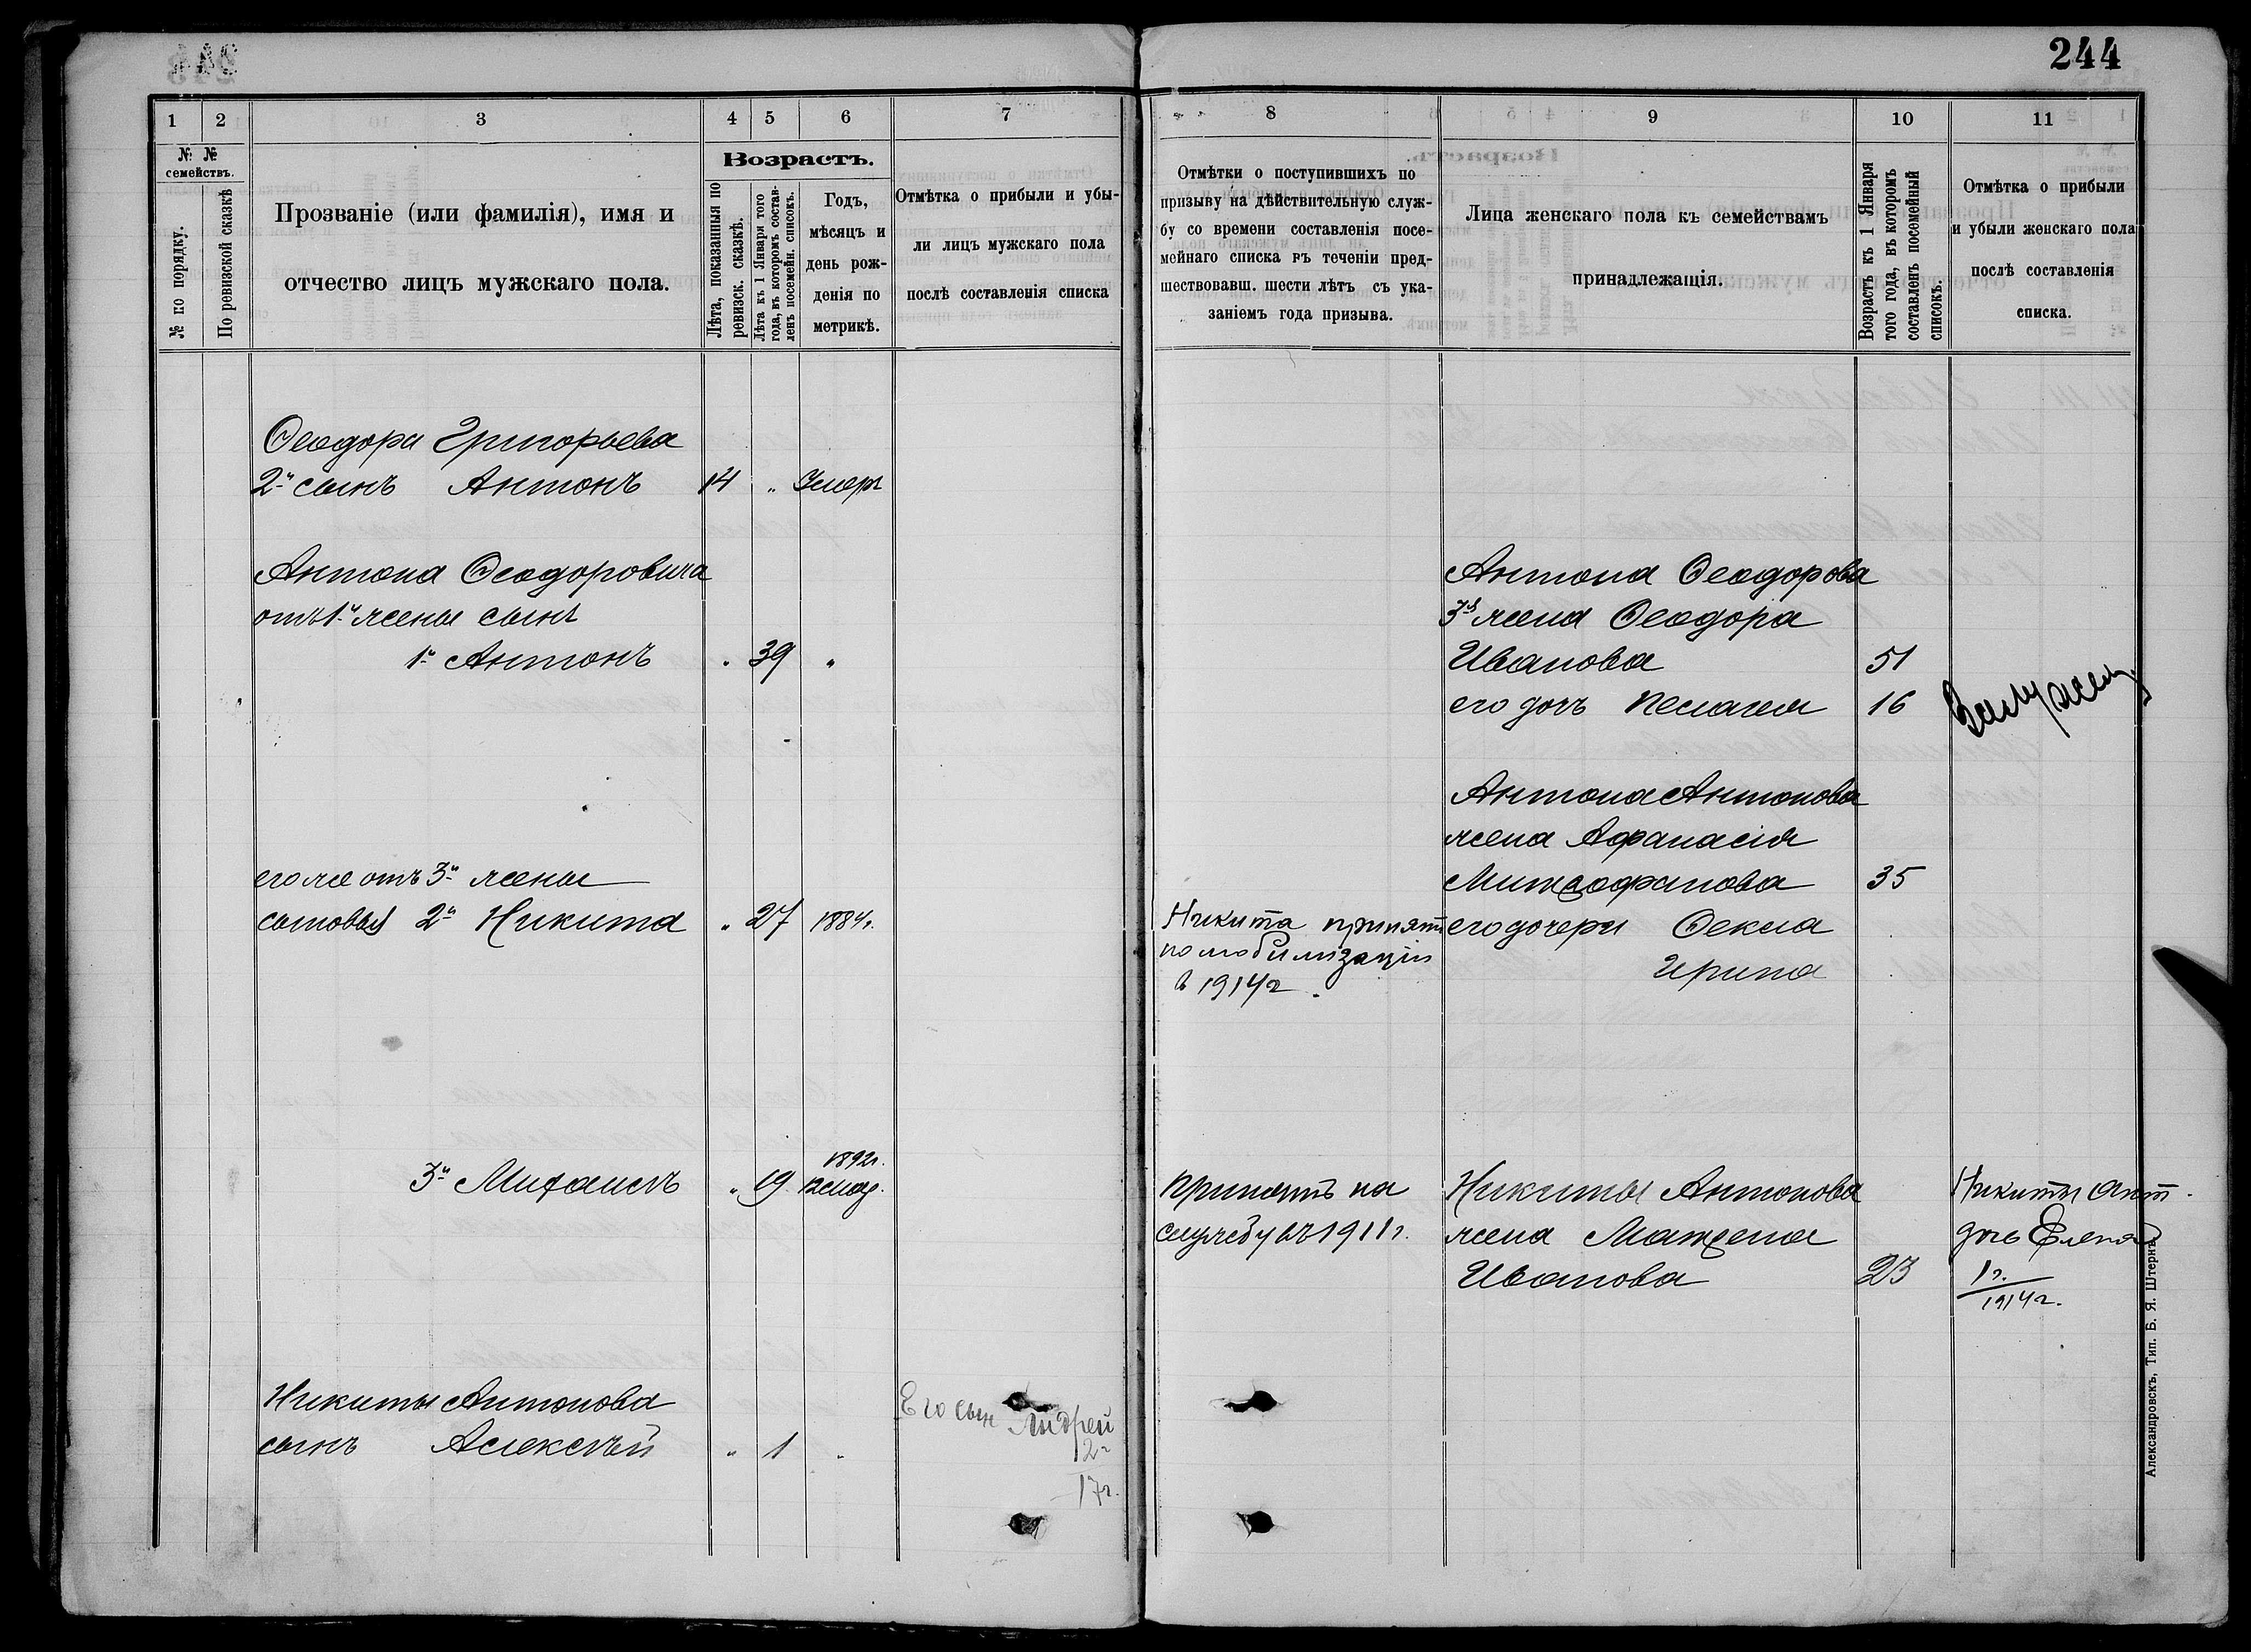 244
1 2 3 4 5 6 7
№ № семействъ.
№ по порядку.
По ревизской сказкѣ
Прозваніе (или фамилія), имя и
отчество лицъ мужскаго пола.
Возрастъ.
Лѣта, показанныя по
ревизск. сказкѣ.
Лѣта къ 1 Января того
года, въ которомъ состав-
ленъ посемейн. списокъ.
Годъ,
мѣсяцъ и
день рож-
денія по
метрикѣ.
Отмѣтка о прибыли и убы-
ли лицъ мужскаго пола
послѣ составленія списка
Ѳеодора Григорьева
2й сынъ Антонъ 14 " Умеръ
Антона Ѳеодоровича
отъ 1й жены сынъ
1й Антонъ " 39 "
его же отъ 3й жены
сыновья 2й Никита " 27 1884г.
1892г.
3й Михаилъ " 19
Никиты Антонова
сынъ Алексѣй " 1 "
Его сын Андрей
2г
17г.
8 9 10 11
Отмѣтки о поступившихъ по
призыву на дѣйствительную служ-
бу со времени составленія посе-
мейнаго списка въ теченіи пред-
шествовавш. шести лѣтъ съ ука-
заніемъ года призыва.
Лица женскаго пола къ семействамъ
принадлежащія.
Возрастъ къ 1 Января
того года, въ которомъ
составленъ посемейный
списокъ.
Отмѣтка о прибыли
и убыли женскаго пола
послѣ составленія
списка.
Антона Ѳеодорова
3я жена Ѳеодора
Иванова 51
его дочь Пелагея 16 Замужем
Антона Антонова
жена Афанасія
Митрофанова 35
Никита принятъ
по мобилизаціи
в 1914г.
его дочери Ѳекла
Ирина
Принятъ на
службу въ 1911г.
Никиты Антонова
жена Матрена
Иванова 23
Никиты Ант.
дочь Елена
1г.
1914г.
Александровскъ, Тип. Б. Я. Штернъ.